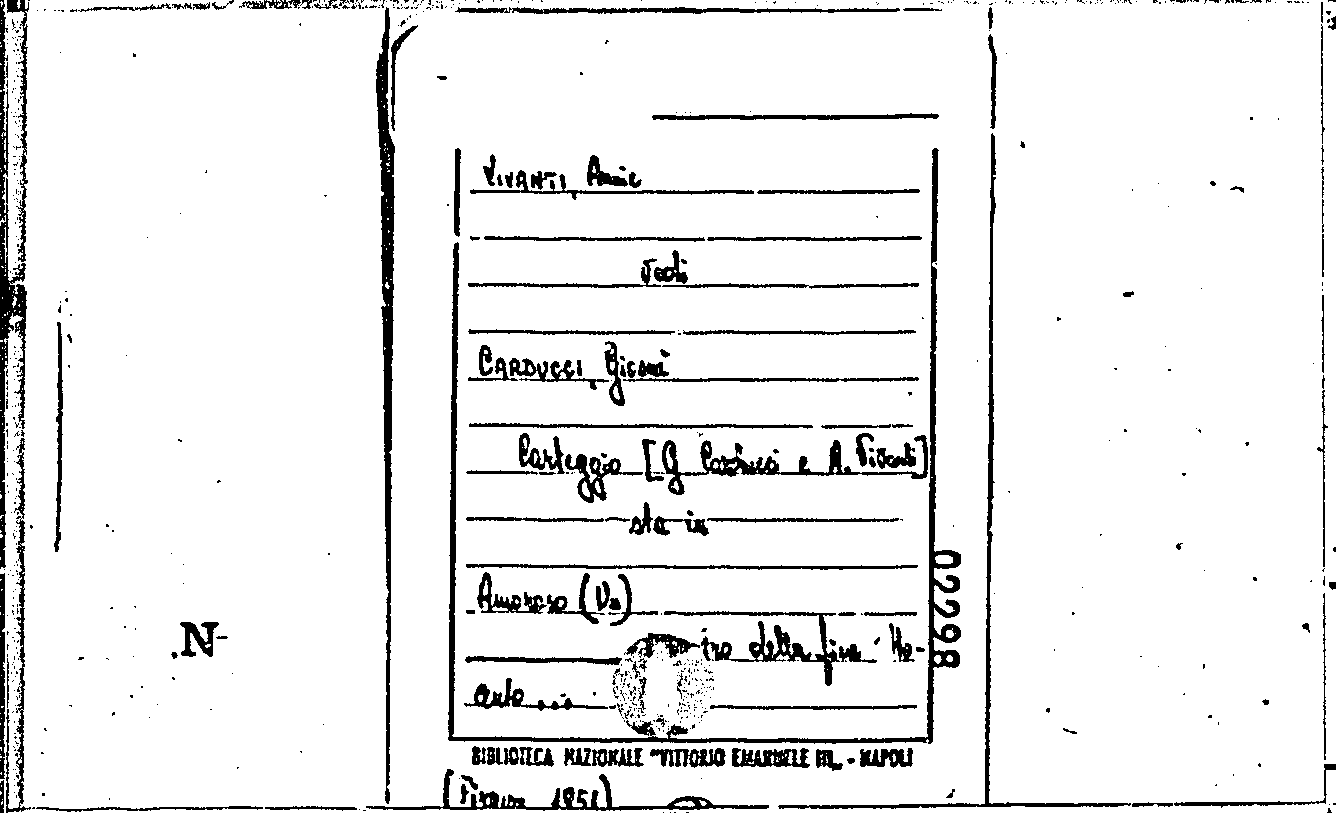 VIVANTI, Annie
Vedi
CARDUCCI, Giosuè
Carteggio [G Carducci e A. Vivanti]
sta in
Amoroso (Un)
tro della fine
02298
.N-
BIBLIOTECA NAZIONALE "VITTORIO EMANUELE III" - NAPOLI